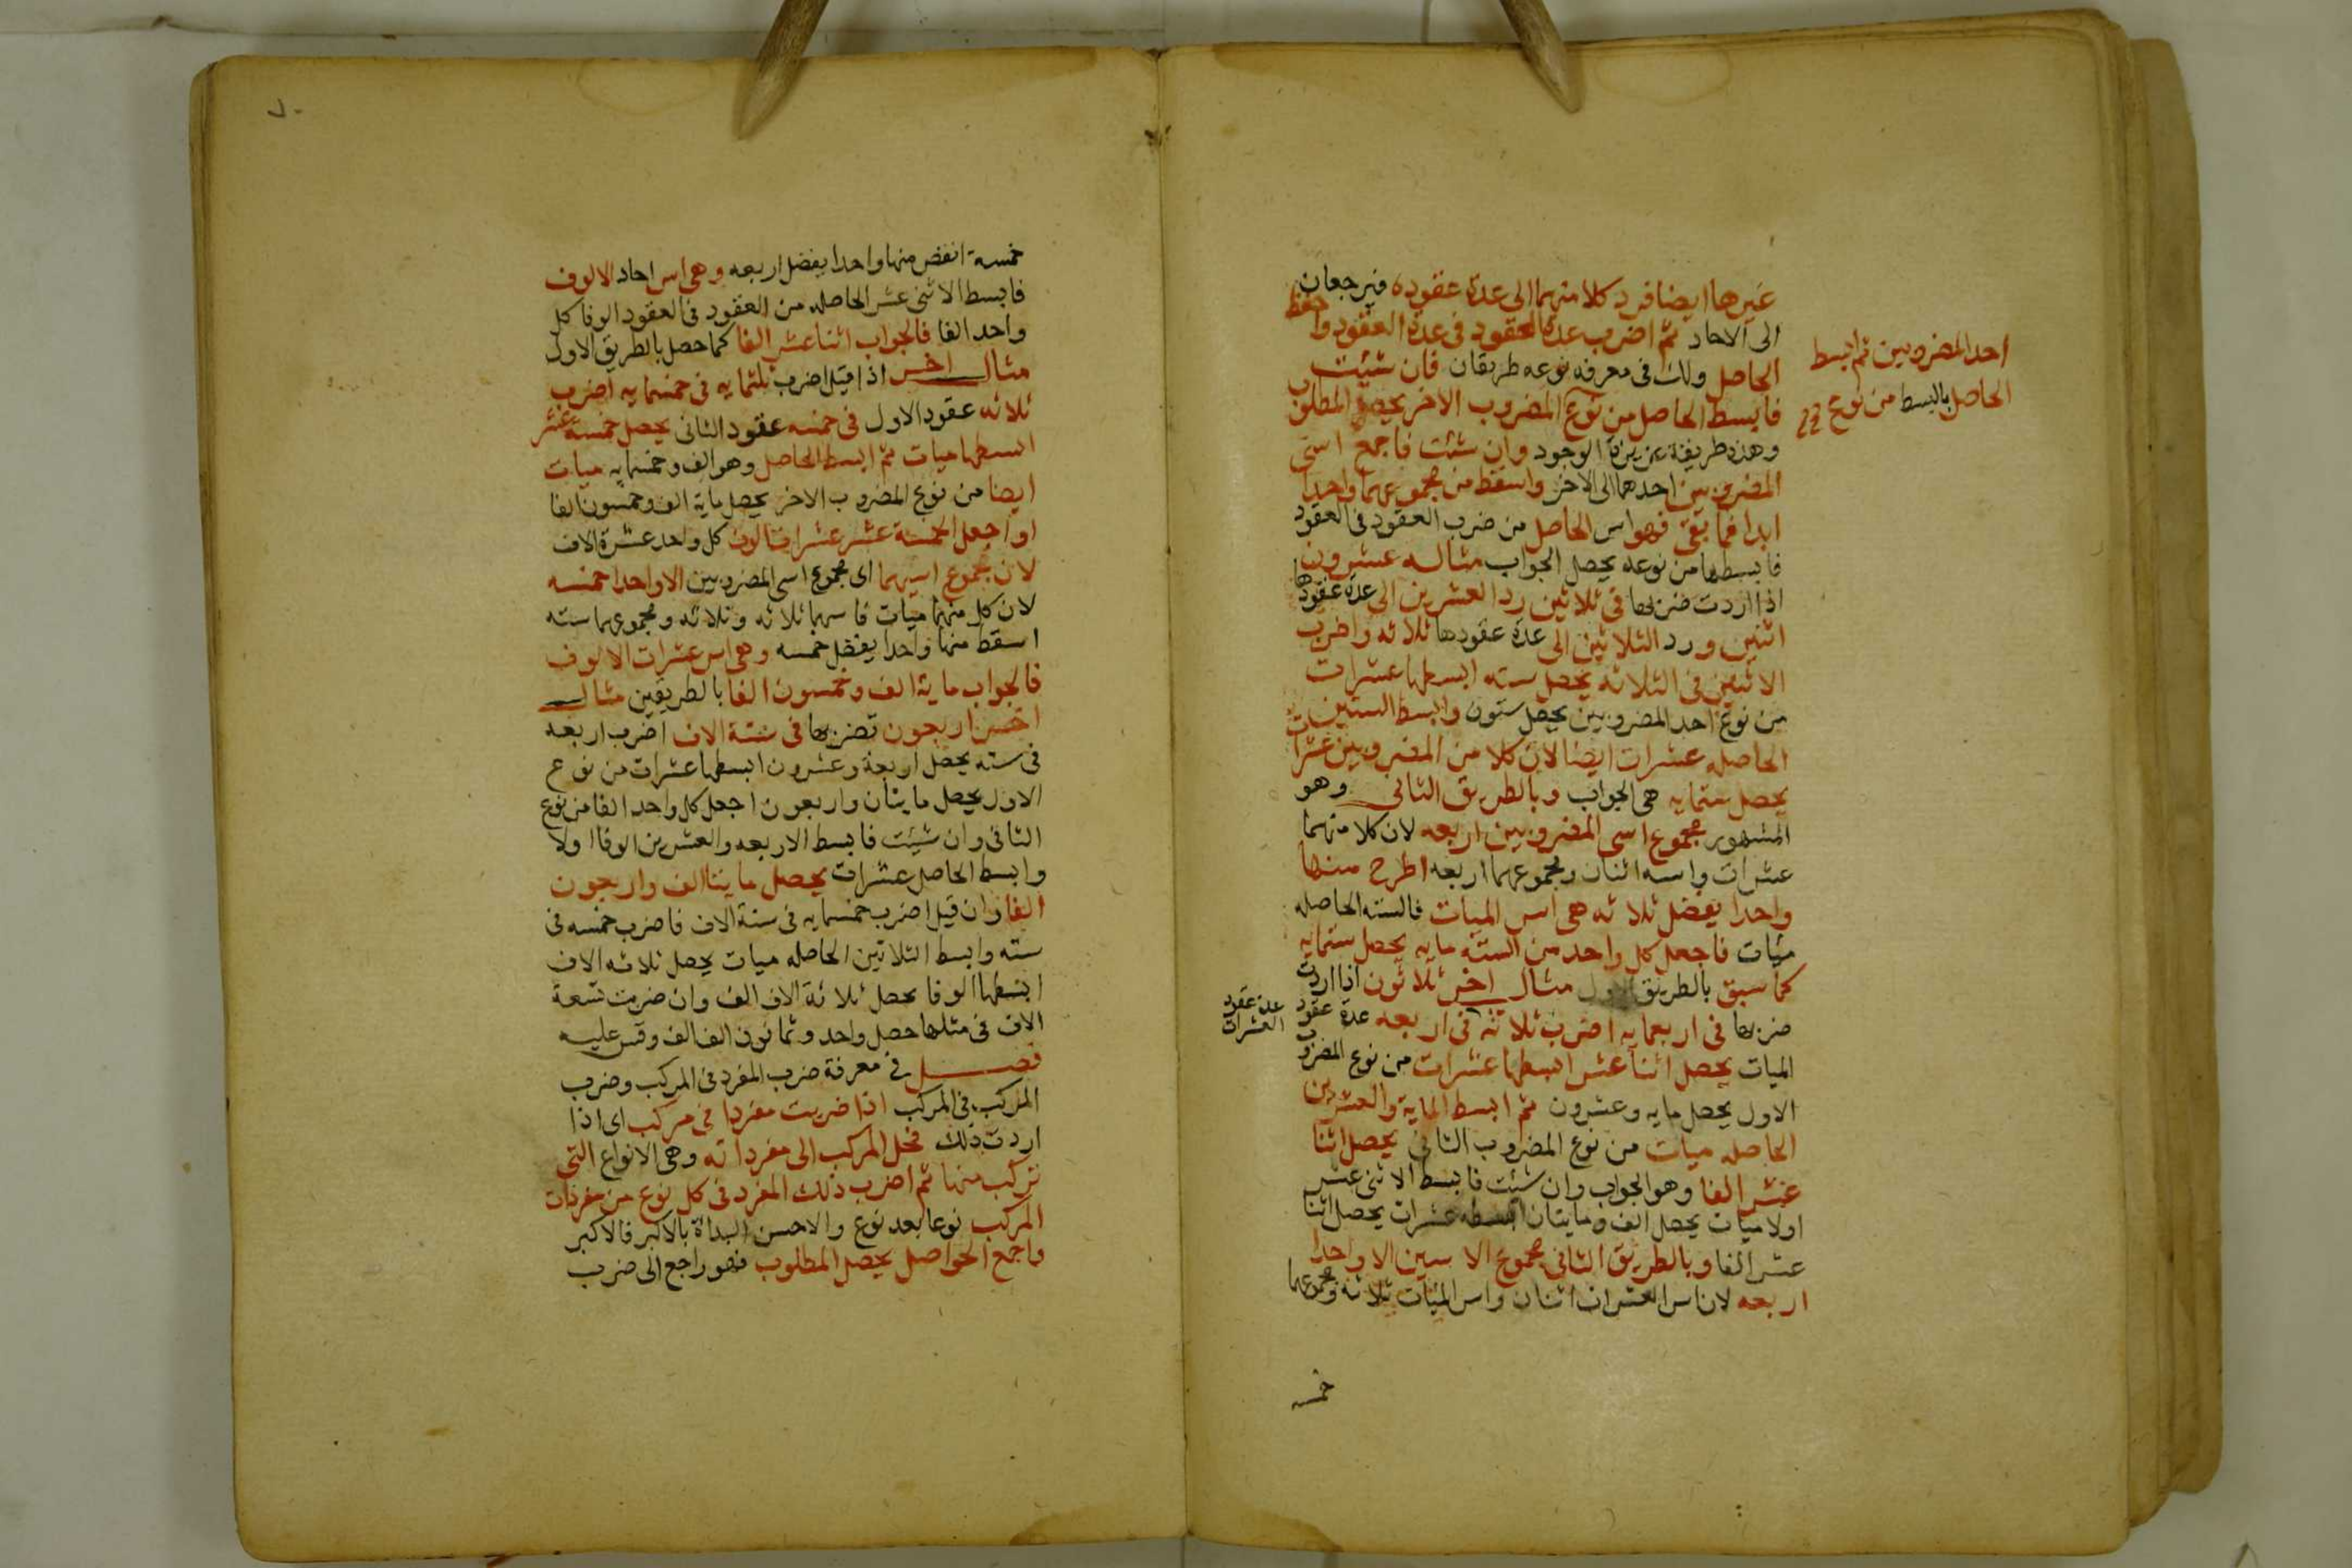 غيرها ايضا فرد كلا منهما الى عدة عقوده فيرجعان
الى الاحاد ثم اضرب عدة العقود فى عدة العقود واحفظ
الحاصل ولك فى معرفه نوعه طريقان فان شيت
فابسط الحاصل من نوع المضروب الاخر يحصل المطلوب
احد المضروبين ثم ابسط
الحاصل بالبسط من نوع
وهذه طريقة عزيزة الوجود وان شئت فاجمع اسى
المضروبين احدهما الى الاخر واسقط من مجموعهما واحدا
ابدا فما بقى فهو اس الحاصل من ضرب العقود فى العقود
فابسطها من نوعه يحصل الجواب مثاله عشرون
اذا اردت ضربها فى ثلاثين رد العشرين الى عدة عقودها
اثنين ورد الثلاثين الى عدة عقودها ثلاثه واضرب
الاثنين فى الثلاثه يحصل سته ابسطها عشرات
من نوع احد المضروبين يحصل ستون وابسط الستين
الحاصله عشرات ايضا لان كلا من المضروبين عشرات
يحصل ستمايه هى الجواب وبالطريق الثانى وهو
المشهور مجموع اسى المضروبين اربعه لان كلا منهما
عشرات واسه اثنان ومجموعهما اربعه اطرح منها
واحدا يفضل ثلاثه هى اس الميات فالسته الحاصله
مئات فاجعل كل واحد من السته مايه يحصل ستمايه
كما سبق بالطريق الاول مثال اخر ثلاثون اذا اردت
ضربها فى اربعمايه اضرب ثلاثة فى اربعه عدة عقود
عدة عقود
العشرات
الميات يحصل اثنا عشر ابسطها عشرات من نوع المضروب
الاول يحصل مايه وعشرون ثم ابسط الماية والعشرين
الحاصله ميات من نوع المضروب الثانى يحصل اثنا
عشر الفا وهو الجواب وان شيت فابسط الاثنى عشر
اولا ميات يحصل الف ومايتان ابسطه عشرات يحصل اثنا
عشر الفا وبالطريق الثانى مجموع الاسين الا واحدا
اربعه لان اس العشرات اثنان واس الميات ثلاثه ومجموعهما
خمسه
خمسة انقض منها واحدا يفضل اربعه وهى اس احاد الالوف
فابسط الاثنى عشر الحاصله من العقود فى العقود الوفا كل
واحد الفا فالجواب اثنا عشر الفا كما حصل بالطريق الاول
مثال اخر اذا قيل اضرب ثلثمايه فى خمسمايه اضرب
ثلاثه عقود الاول فى خمسه عقود الثانى يحصل خمسة عشر
ابسطها ميات ثم ابسط الحاصل وهو الف وخمسمايه ميات
ايضا من نوع المضروب الاخر يحصل ماية الف وخمسون الفا
او اجعل الخمسة عشر عشرات الوف كل واحد عشرة الاف
لان مجموع اسيهما اى مجموع اسى المضروبين الا واحدا خمسه
لان كل منهما ميات فاسهما ثلاثه وثلاثه ومجموعهما سته
اسقط منها واحدا يفضل خمسه وهى اس عشرات الالوف
فالجواب ماية الف وخمسون الفا بالطريقين مثال
اخر اربعون تضربها فى ستة الاف اضرب اربعه
فى سته يحصل اربعة وعشرون ابسطها عشرات من نوع
الاول يحصل مايتان واربعون اجعل كل واحد الفا من نوع
الثانى وان شيئت فابسط الاربعه والعشرين الوفا اولا
وابسط الحاصل عشرات يحصل مايتا الف واربعون
الفا وان قيل اضرب خمسمايه فى ستة الاف فاضرب خمسه فى
سته وابسط الثلاثين الحاصله ميات يحصل ثلاثه الاف
ابسطها الوفا يحصل ثلاثة الاف الف وان ضربت تسعة
الاف فى مثلها حصل واحد وثمانون الف الف وقس عليه
فصل فى معرفة ضرب المفرد فى المركب وضرب
المركب فى المركب اذا ضربت مفردا فى مركب اى اذا
اردت ذلك فحل المركب الى مفرداته وهى الانواع التى
تركب منها ثم اضرب ذلك المفرد فى كل نوع من مفردات
المركب نوعا بعد نوع والاحسن البداة بالاكبر فالاكبر
واجمع الحواصل يحصل المطلوب فهو راجع الى ضرب